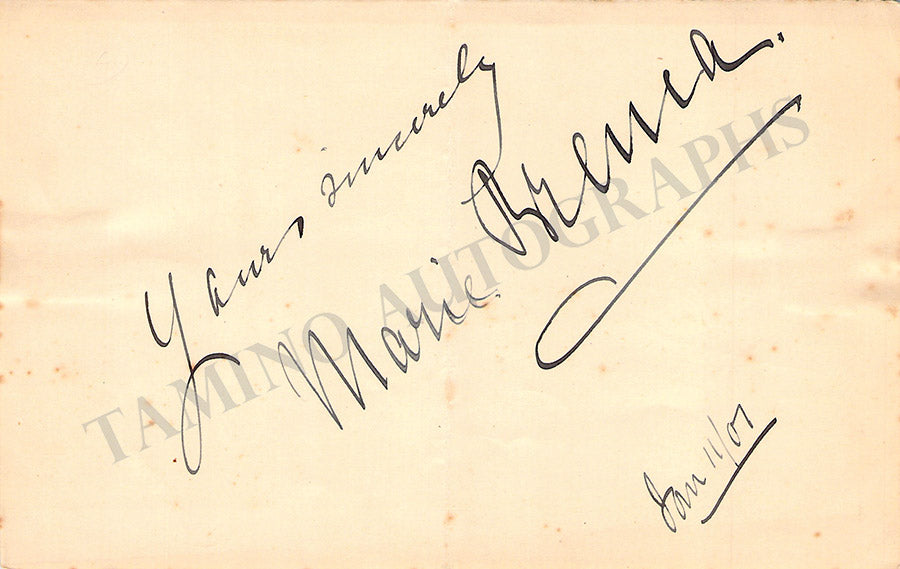 Yours sincerely
Marie Brema.
Jan 11/01
TAMINO AUTOGRAPHS